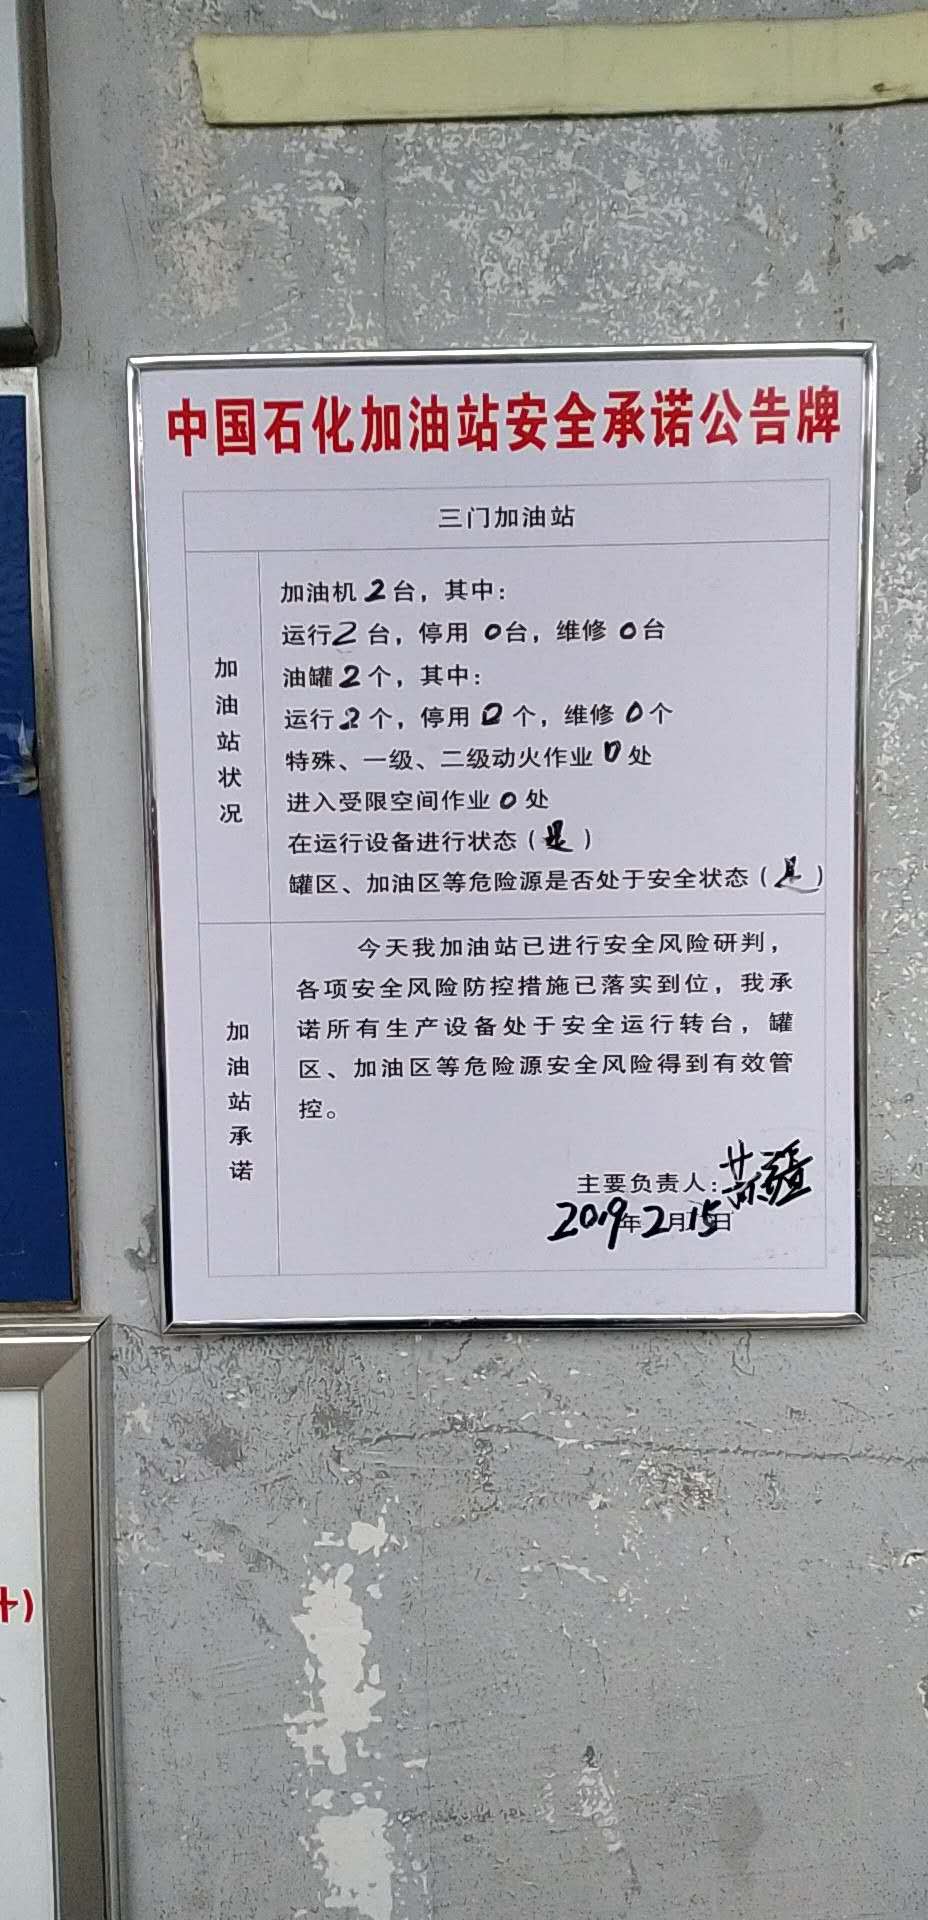 中国石化加油站安全承诺公告牌
三门加油站
加油站状况
加油机 2 台，其中：
运行 2 台，停用 0 台，维修 0 台
油罐 2 个，其中：
运行 2 个，停用 0 个，维修 0 个
特殊、一级、二级动火作业 0 处
进入受限空间作业 0 处
在运行设备进行状态（是）
罐区、加油区等危险源是否处于安全状态（是）
加油站承诺
今天我加油站已进行安全风险研判，
各项安全风险防控措施已落实到位，我承
诺所有生产设备处于安全运行转台，罐
区、加油区等危险源安全风险得到有效管
控。
主要负责人：
2019年2月15日
十）